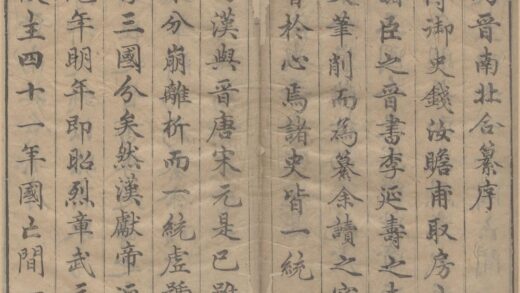 晉南北合纂序
御史錢汝瞻甫取房
臣之晉書李延壽之
筆削而為纂余讀之
於心焉諸史皆一統
漢與晉唐宋元是已雖
分崩離析而一統虛
三國分矣然漢獻帝
年明年即昭烈章武
主四十一年國亡間